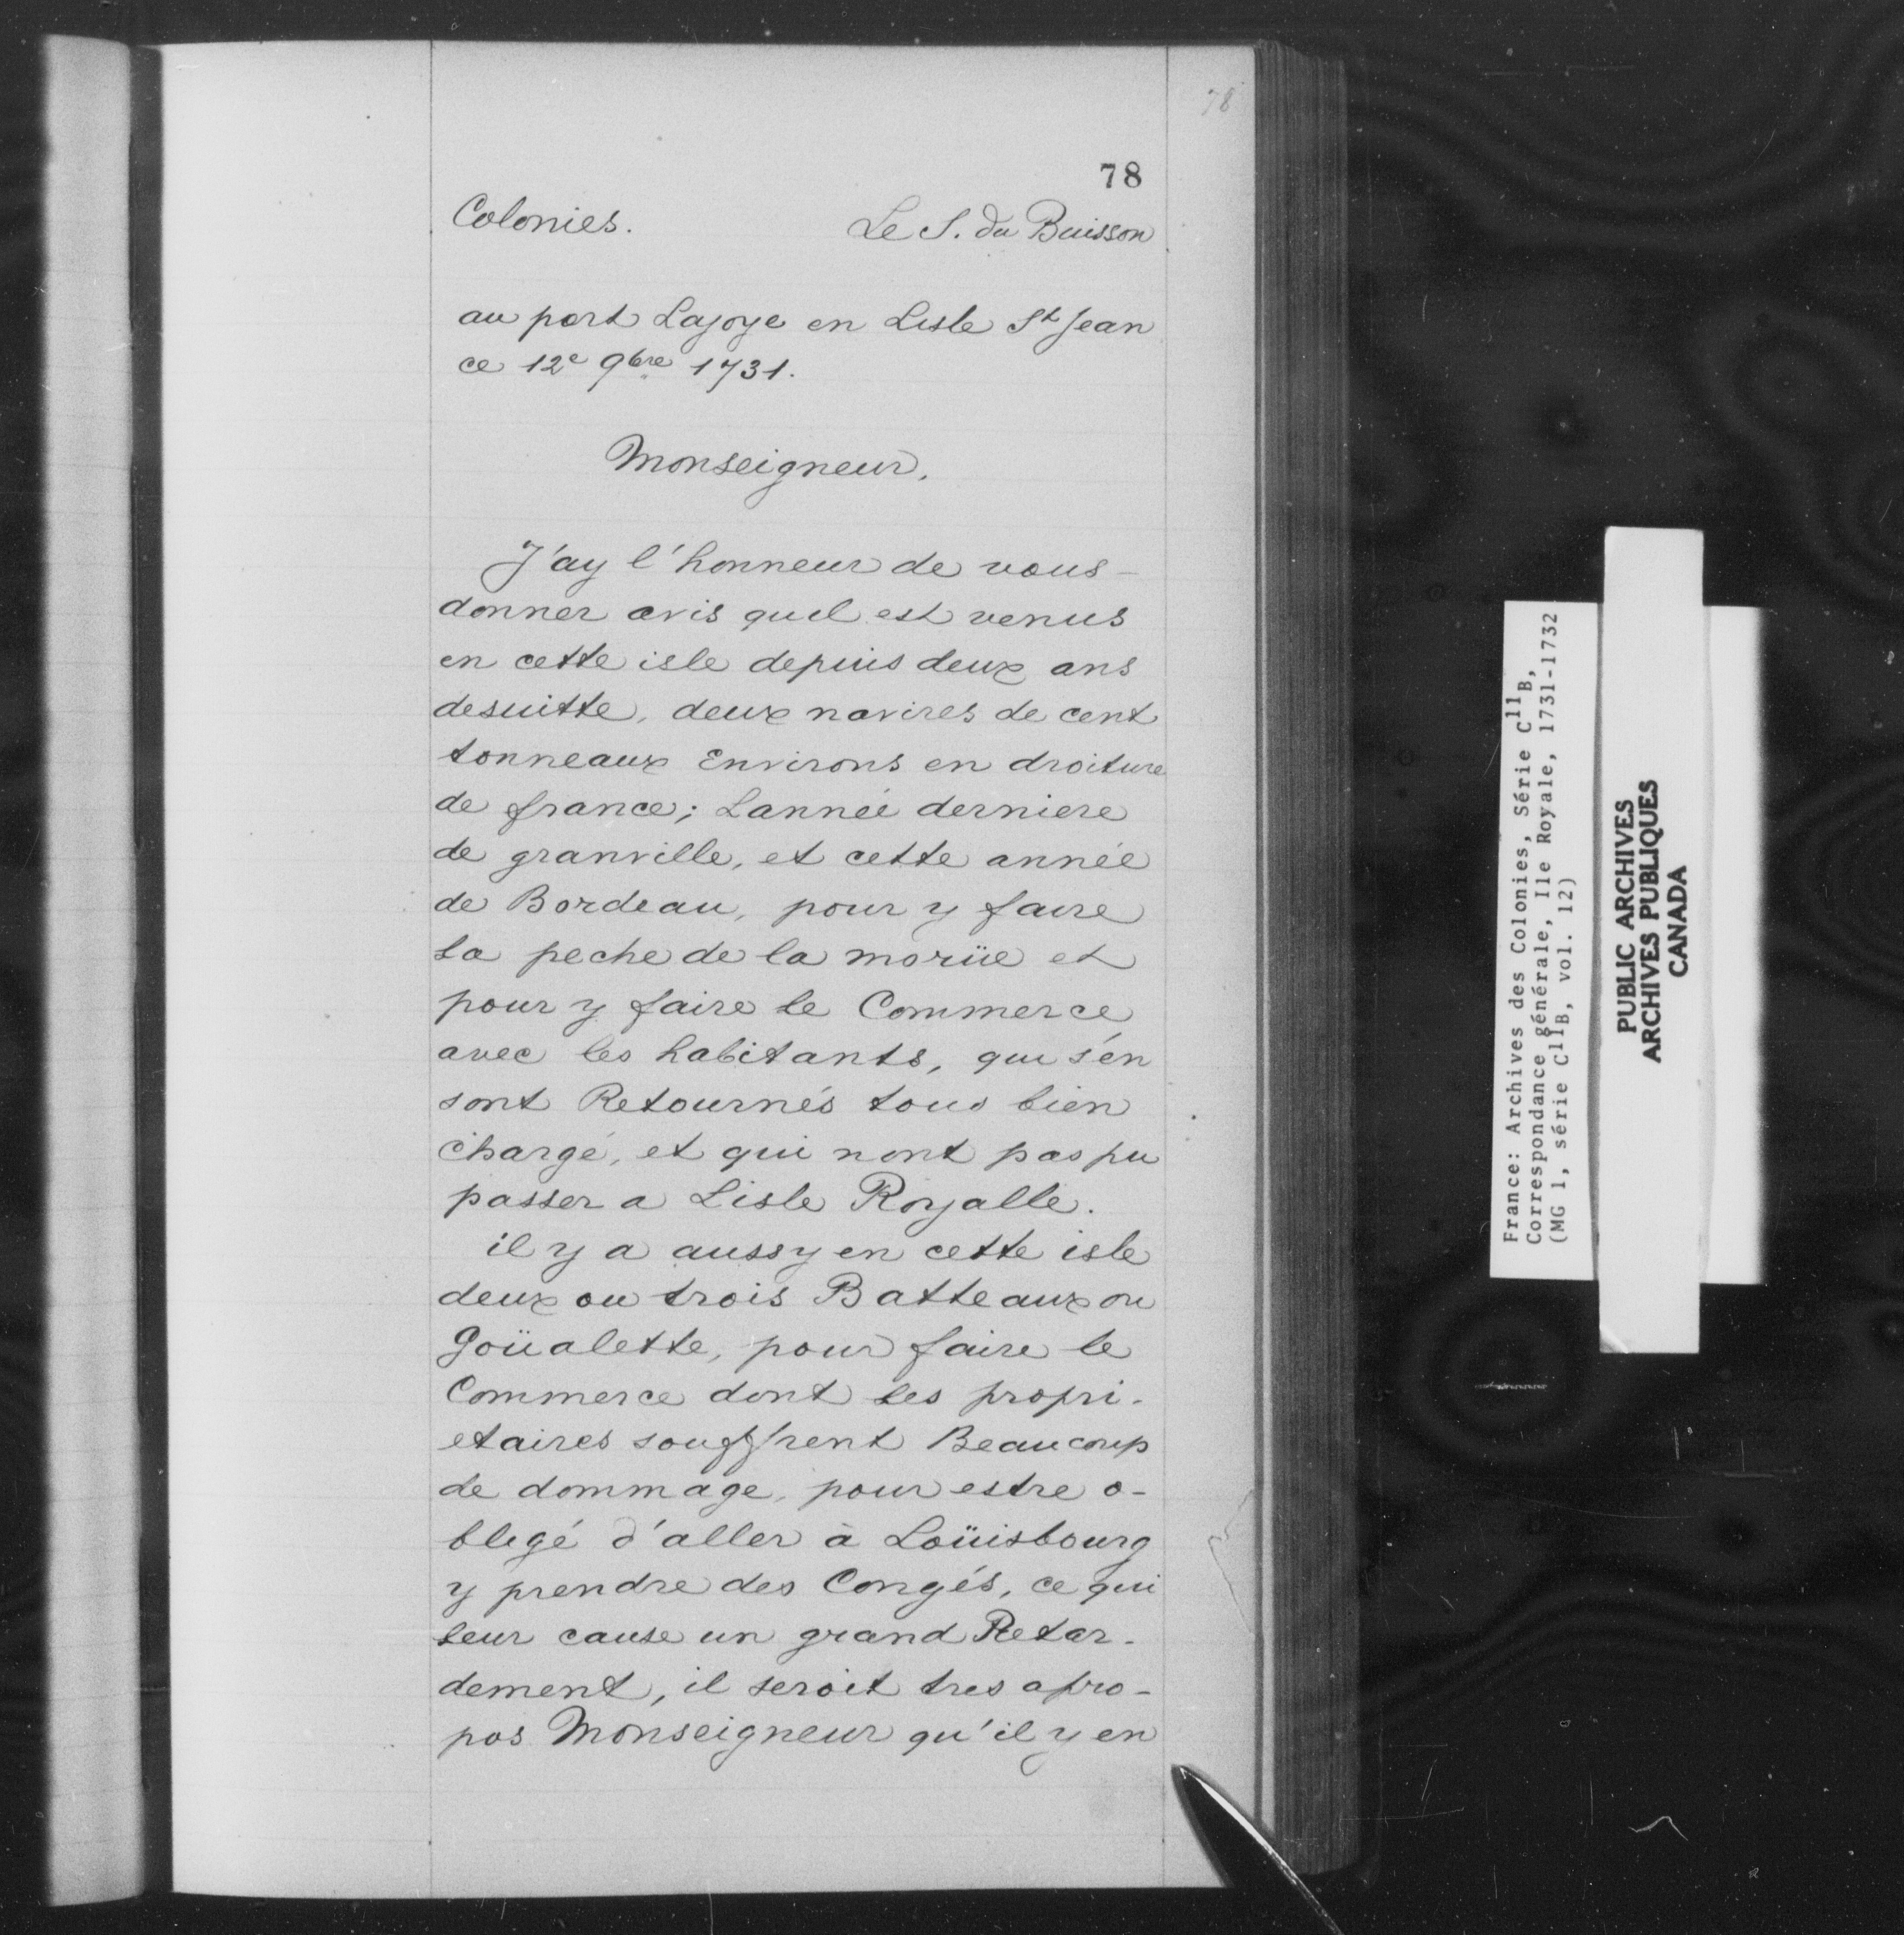 78
78
Colonies. Le S. du Buisson
au port Lajoye en Lisle St Jean
ce 12e 9bre 1731.
Monseigneur,
J'ay l'honneur de vous-
donner avis quil est venus
en cette isle depuis deux ans
desuitte, deux navires de cent
tonneaux Environs en droiture
de france; Lannée derniere
de granville, et cette année
de Bordeau, pour y faire
la peche de la morüe et
pour y faire le Commerce
avec les habitants, qui s'en
sont Retournés tous bien
chargé, et qui nont pas pu
passer a Lisle Royalle.
il y a aussy en cette isle
deux ou trois Batteaux ou
Goüalette, pour faire le
Commerce dont les propri-
etaires souffrent Beaucoup
de dommage, pour estre o-
bligé d'aller à Loüisbourg
y prendre des Congés, ce qui
leur cause un grand Retar-
dement, il seroit tres apro-
pos Monseigneur qu'il y en
France: Archives des Colonies, Série C11B,
Correspondance générale, Ile Royale, 1731-1732
(MG 1, série C11B, vol. 12)
PUBLIC ARCHIVES
ARCHIVES PUBLIQUES
CANADA